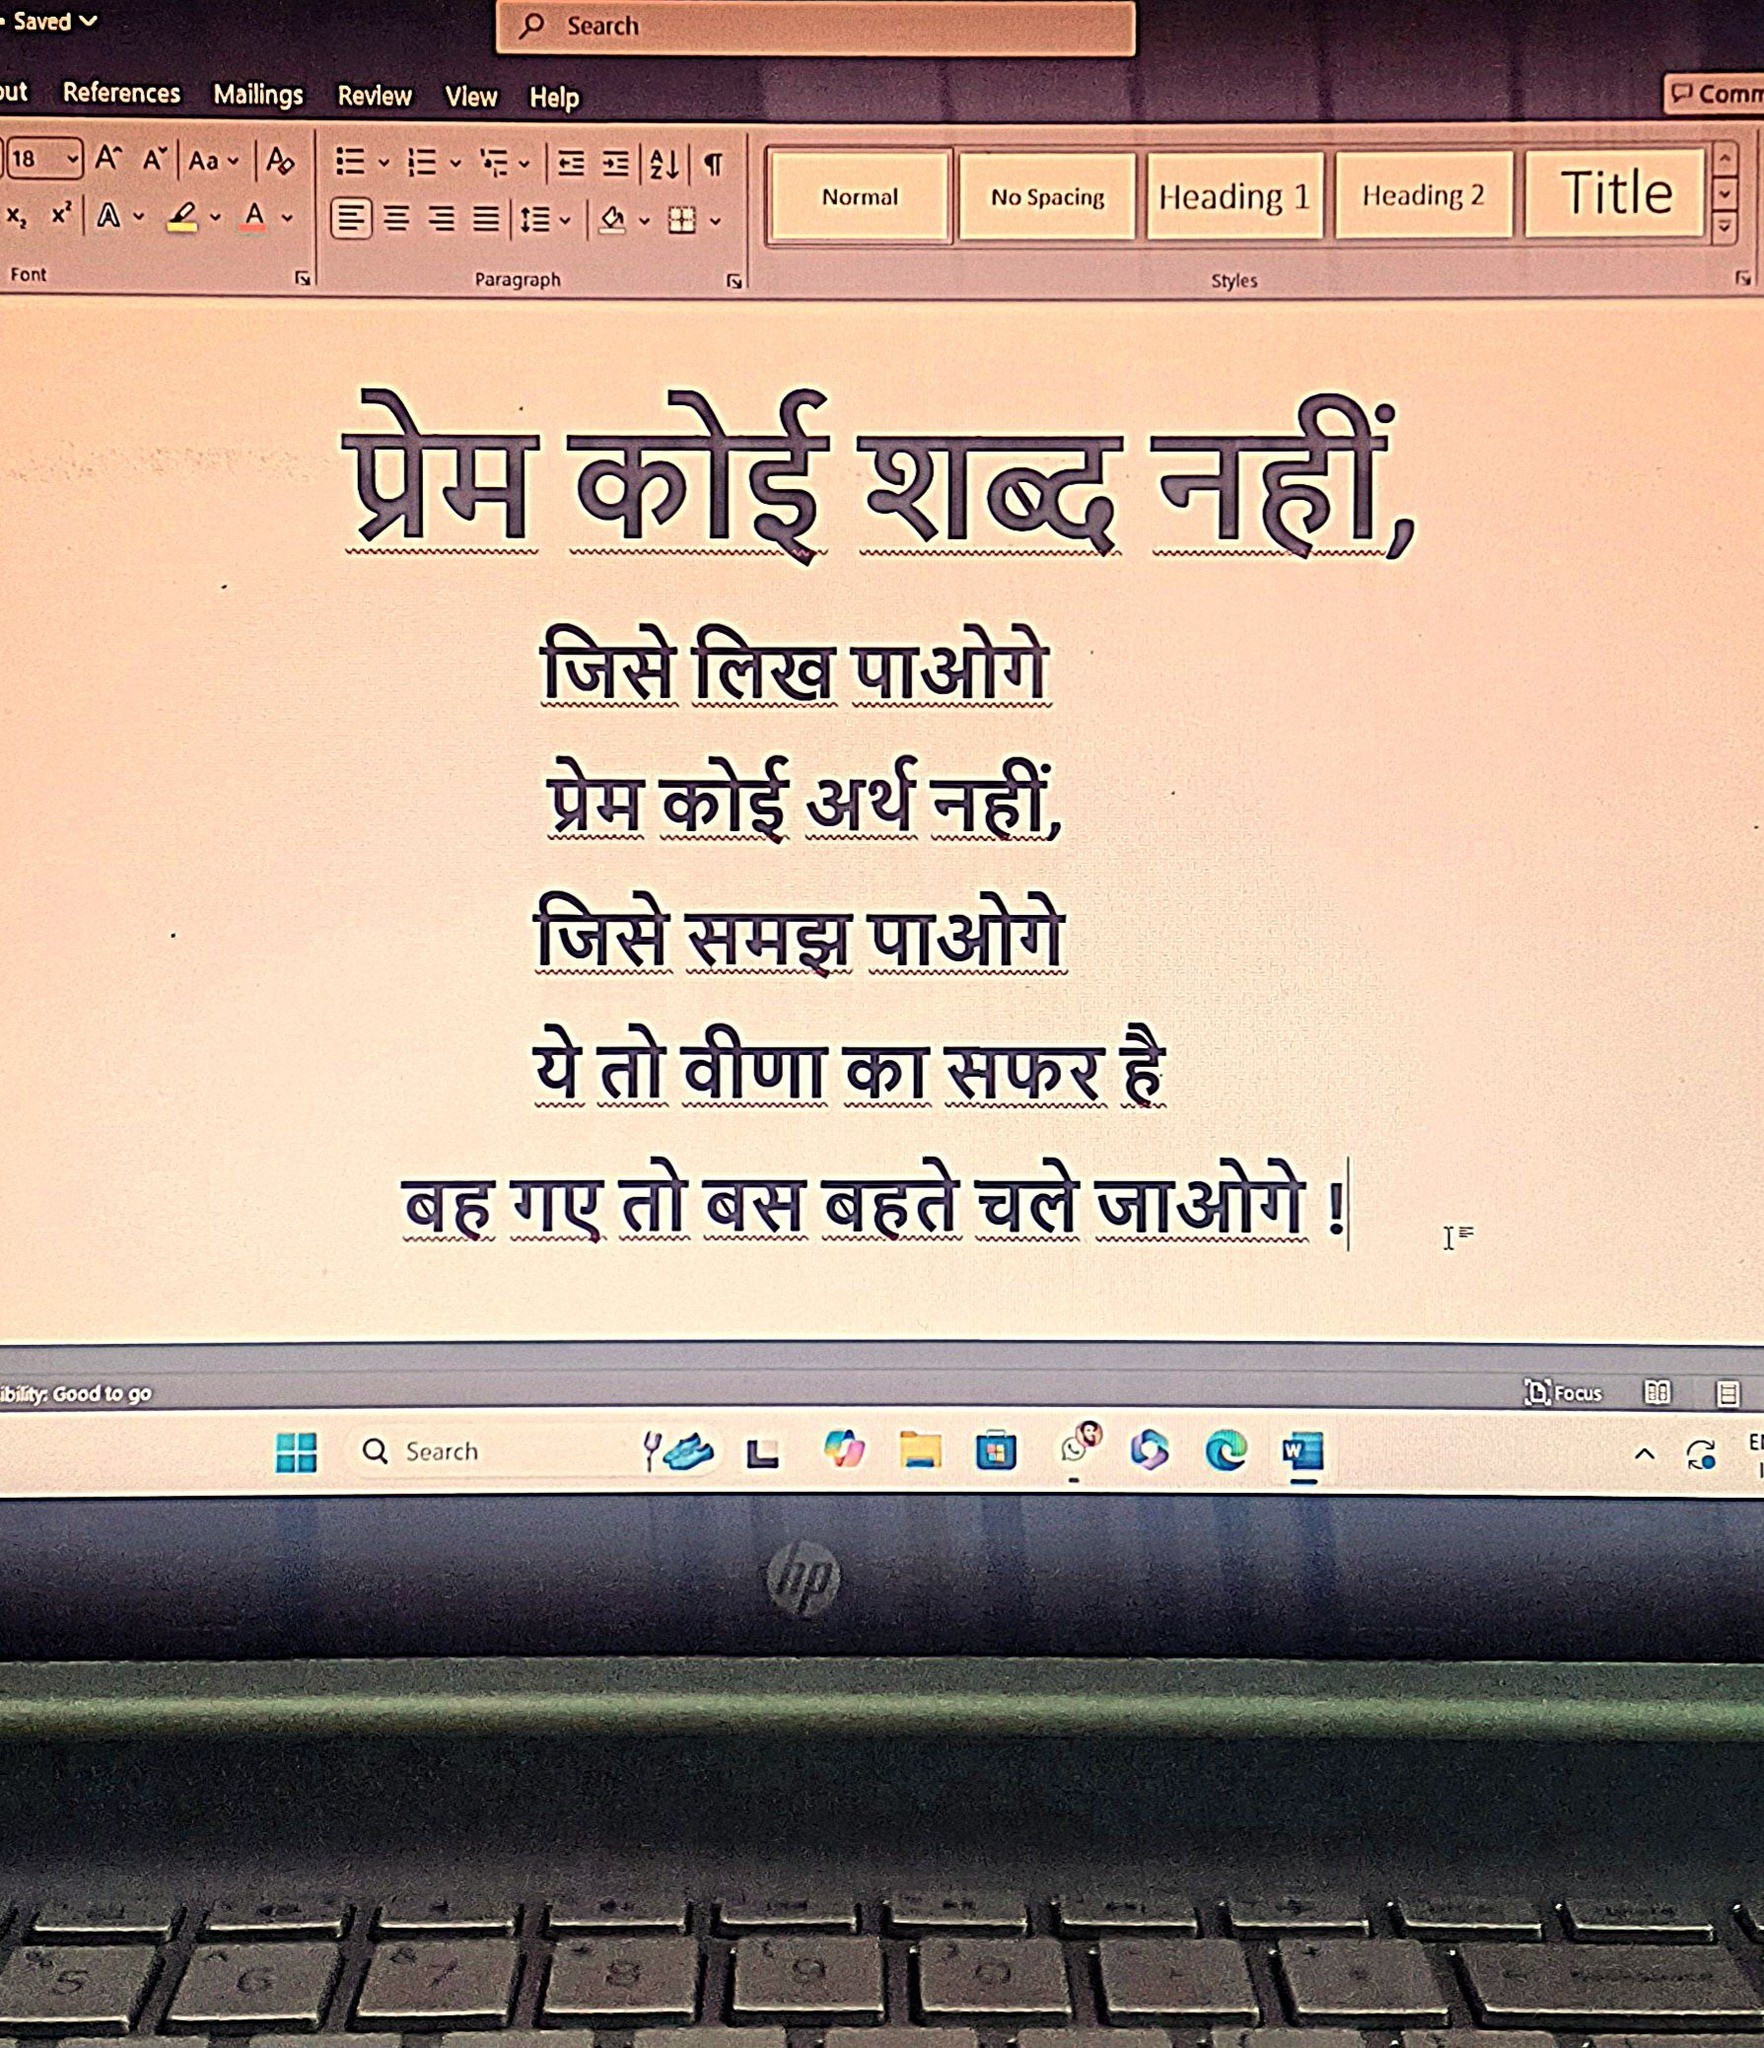 Saved
Search
out References Mailings Review View Help
Comm
18 Aa
Normal No Spacing Heading 1 Heading 2 Title
Font Paragraph Styles
प्रेम कोई शब्द नहीं,
जिसे लिख पाओगे
प्रेम कोई अर्थ नहीं,
जिसे समझ पाओगे
ये तो वीणा का सफर है
बह गए तो बस बहते चले जाओगे !
ibility: Good to go
Focus
Search
hp
5 6 7 8 9 0